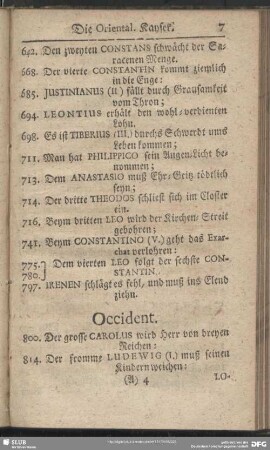 Die Oriental. Kayser. 7
642. Den zweyten CONSTANS schwächt der Sa-
racenen Menge.
668. Der vierte CONSTANTIN kommt ziemlich
in die Enge:
685. JUSTINIANUS (II.) fällt durch Grausamkeit
vom Thron;
694. LEONTIUS erhält den wohl-verdienten
Lohn.
698. Es ist TIBERIUS (III.) durchs Schwerdt ums
Leben kommen;
711. Man hat PHILIPPICO sein Augen-Licht be-
nommen;
713. Dem ANASTASIO muß Ehr-Geitz tödtlich
seyn;
714. Der dritte THEODOS schließt sich im Closter
ein.
716. Beym dritten LEO wird der Kirchen-Streit
gebohren;
741. Beym CONSTANTINO (V.) geht das Exar-
chat verlohren:
775. } Dem vierten LEO folgt der sechste CON-
780. } STANTIN.
797. IRENEN schlägt es fehl, und muß ins Elend
ziehn.
Occident.
800. Der grosse CAROLUS wird Herr von dreyen
Reichen:
814. Der fromme LUDEWIG (I.) muß seinen
Kindern weichen:
(A) 4 LO-
SLUB